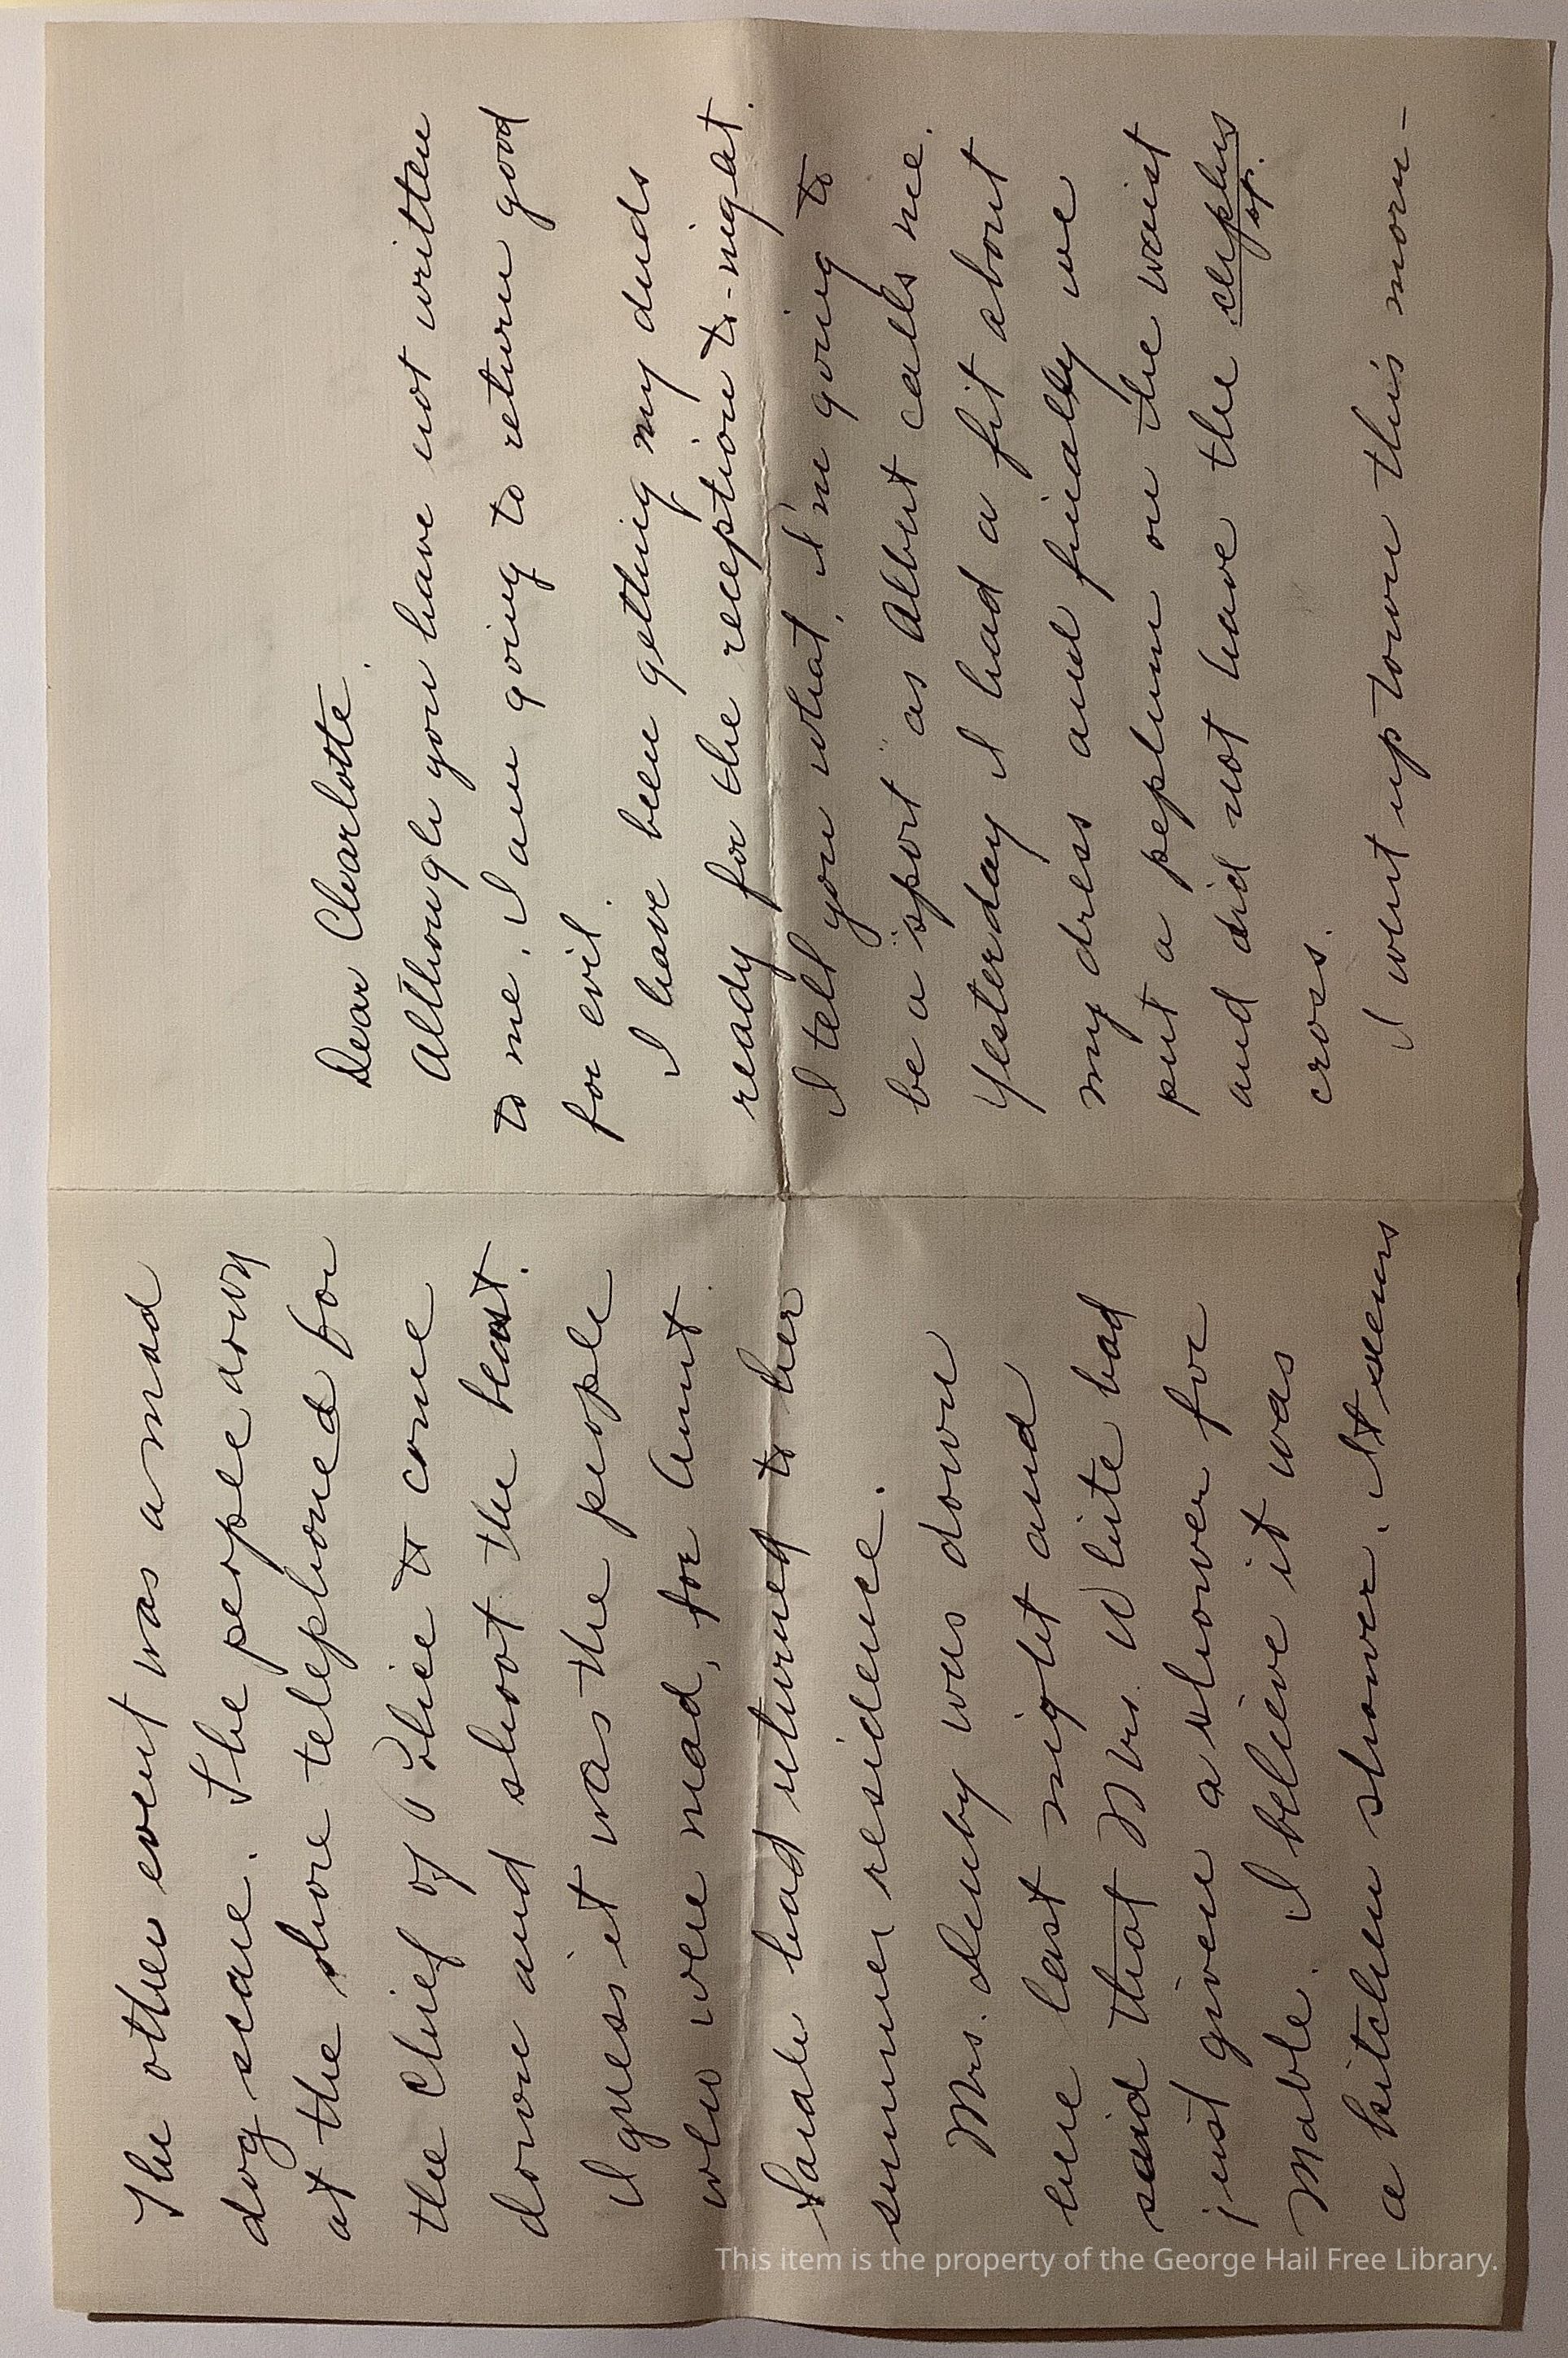 Dear Charlotte.
Although you have not written
to me, I am going to return good
for evil.
I have been getting my duds
ready for the reception to-night.
I tell you what, I'm going to
be a "sport" as Albert calls me.
Yesterday I had a fit about
my dress and finally we
put a peplum on the waist
and did not have the
cross.
I went up town this morn-
The other event was a mad
dog scare. The people down
at the shore telephoned for
the Chief of Police to come
down and shoot the beast.
I guess it was the people
who were mad, for Aunt
Sarah had returned to her
summer residence.
Mrs. was down
here last night and
said that Mrs. White had
just given a shower for
Mable. I believe it was
a kitchen shower. It seems
This item is the property of the George Hail Free Library.